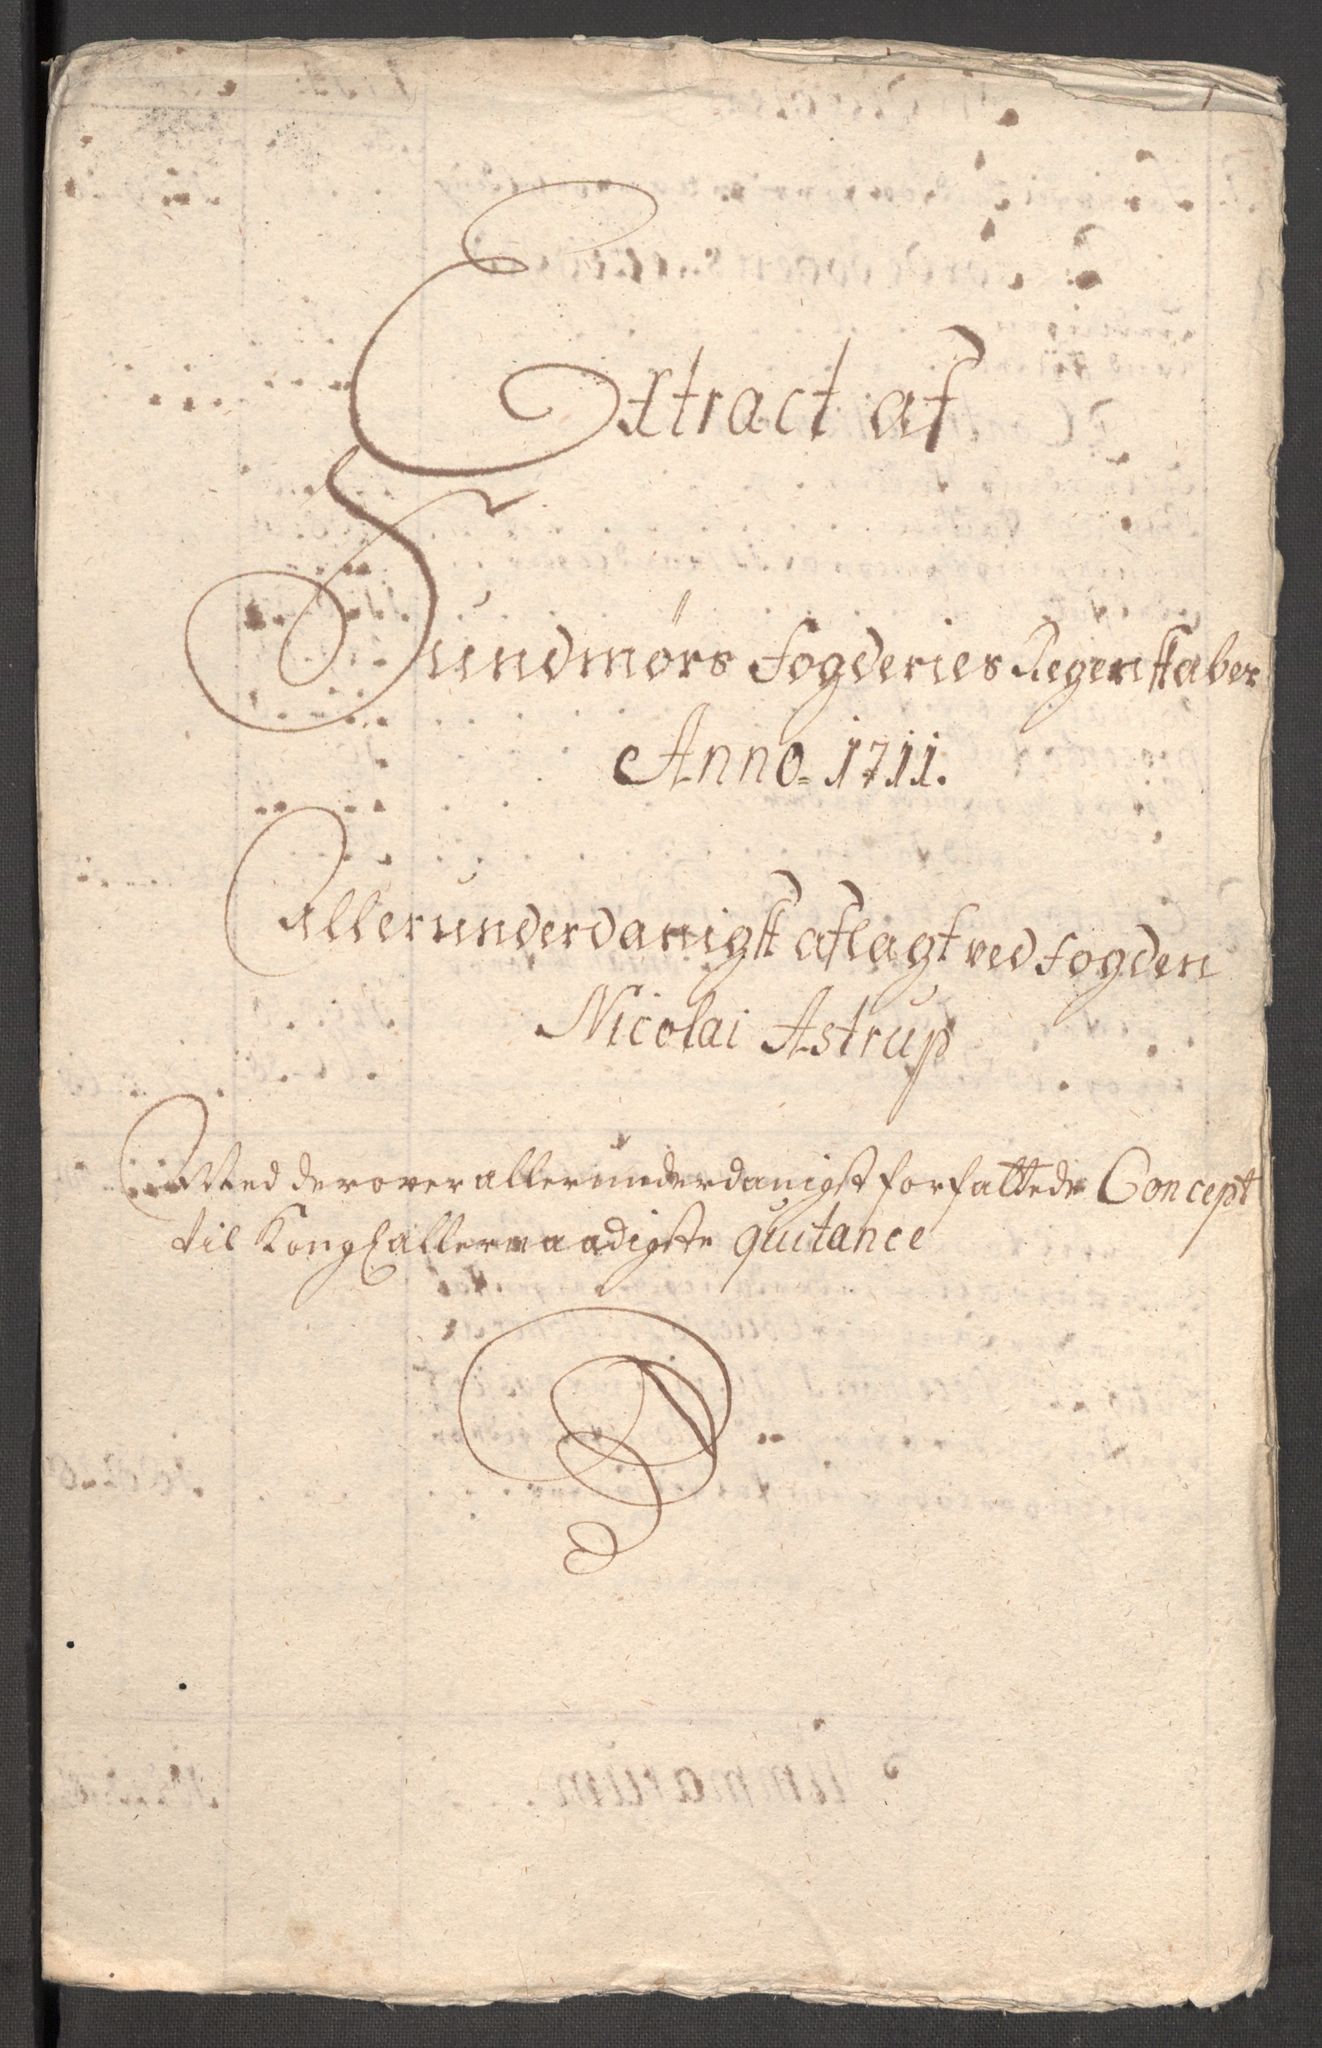 Extract af
Sundmørs fogderies Regenskaber
Anno 1711.
allerunderdanigst aflagt ved fogden
Nicolai Astrup
Med derover allerunderdanigst forfattede Concept
til Kongl allernaadigste quitance
Summarum